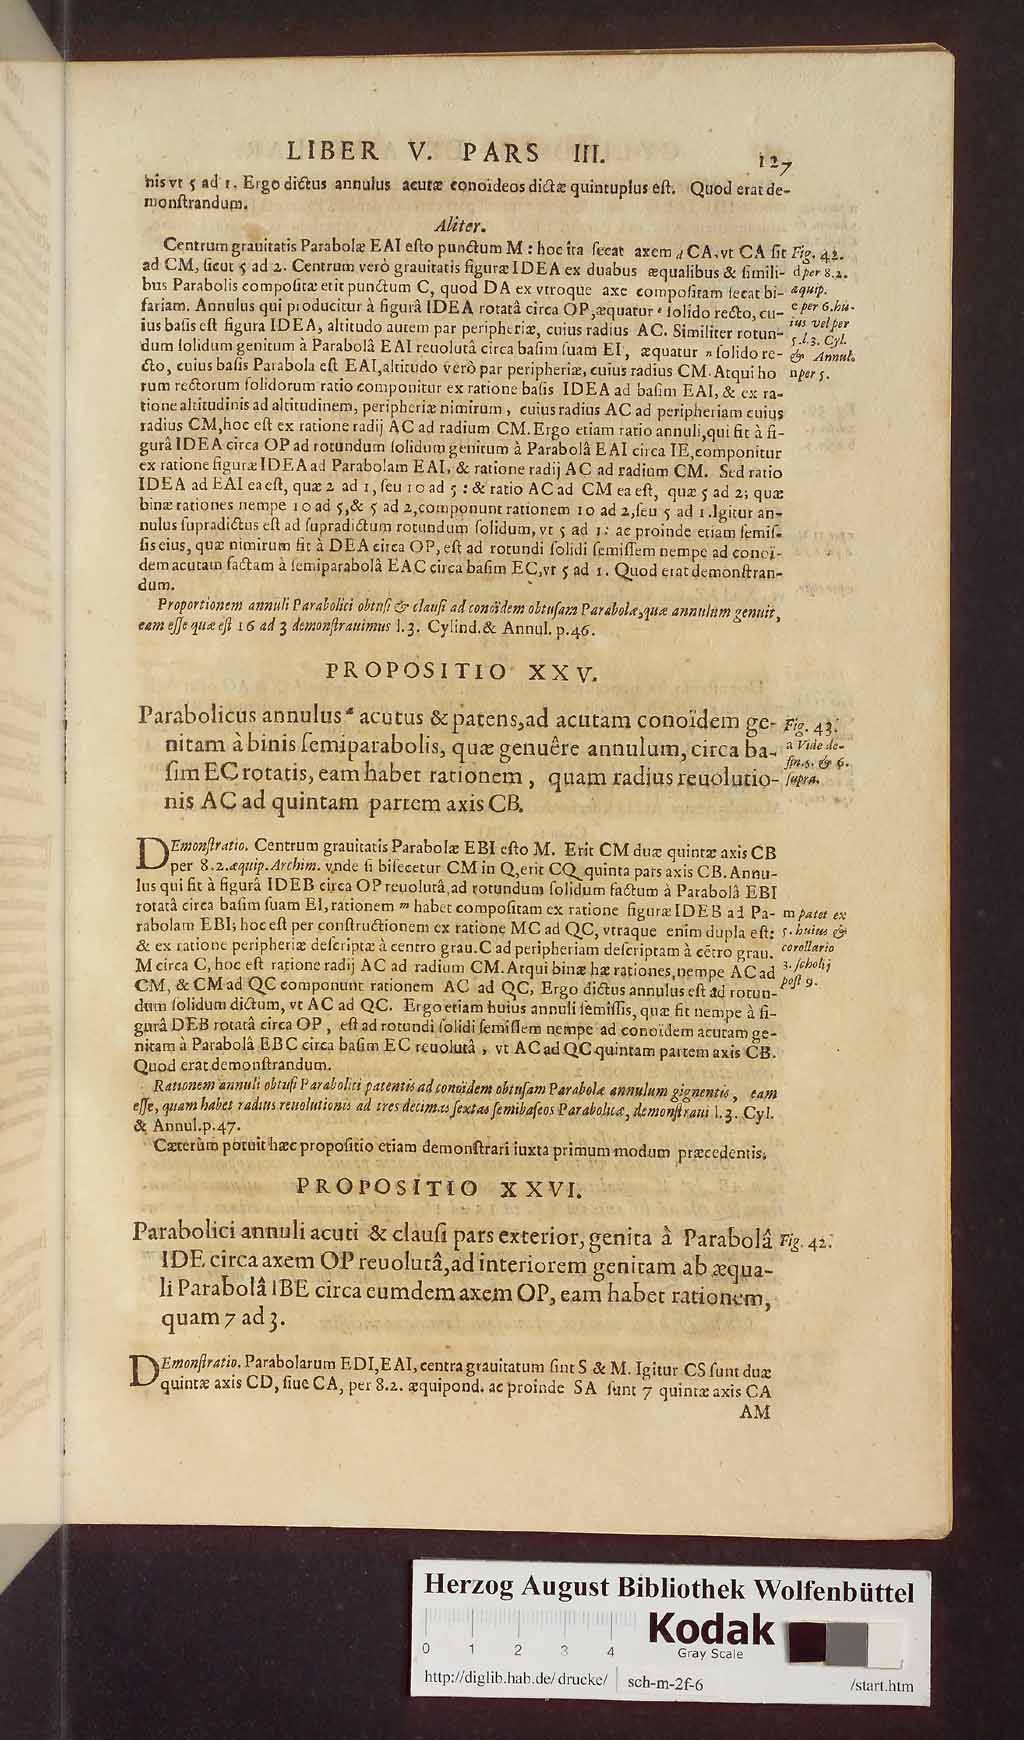 LIBER V. PARS III. 127
nis vt 5 ad 1. Ergo dictus annulus acutæ conoideos dictæ quintuplus est. Quod erat de-
monſtrandum.
Aliter.
Centrum grauitatis Parabolæ EAI eſto punctum M : hoc ita ſecat axem d CA, vt CA ſit Fig. 42.
ad CM, ſicut 5 ad 2. Centrum verò grauitatis figuræ IDEA ex duabus æqualibus & ſimili- d per 8.2.
bus Parabolis compoſitæ erit punctum C, quod DA ex vtroque axe compoſitam ſecat bi- æquip.
fariam. Annulus qui producitur à figurâ IDEA rotatâ circa OP, æquatur e ſolido recto, cu- e per 6. hu-
ius baſis eſt figura IDEA, altitudo autem par peripheriæ, cuius radius AC. Similiter rotun- ius vel per
dum ſolidum genitum à Parabolâ EAI reuolutâ circa baſim ſuam EI, æquatur n ſolido re- 5. l. 3. Cyl. & Annul.
cto, cuius baſis Parabola eſt EAI, altitudo verò par peripheriæ, cuius radius CM. Atqui ho n per 5.
rum rectorum ſolidorum ratio componitur ex ratione baſis IDEA ad baſim EAI, & ex ra-
tione altitudinis ad altitudinem, peripheriæ nimirum, cuius radius AC ad peripheriam cuius
radius CM, hoc eſt ex ratione radij AC ad radium CM. Ergo etiam ratio annuli, qui fit à fi-
gurâ IDEA circa OP ad rotundum ſolidum genitum à Parabolâ EAI circa IE, componitur
ex ratione figuræ IDEA ad Parabolam EAI, & ratione radij AC ad radium CM. Sed ratio
IDEA ad EAI ea eſt, quæ 2 ad 1, ſeu 10 ad 5 : & ratio AC ad CM ea eſt, quæ 5 ad 2; quæ
binæ rationes nempe 10 ad 5, & 5 ad 2, componunt rationem 10 ad 2, ſeu 5 ad 1. Igitur an-
nulus ſupradictus eſt ad ſupradictum rotundum ſolidum, vt 5 ad 1: ac proinde etiam ſemiſ-
ſis eius, quæ nimirum fit à DEA circa OP, eſt ad rotundi ſolidi ſemiſſem nempe ad conoi-
dem acutam factam à ſemiparabolâ EAC circa baſim EC, vt 5 ad 1. Quod erat demonſtran-
dum.
Proportionem annuli Parabolici obtuſi & clauſi ad conoïdem obtuſam Parabolæ, quæ annulum genuit,
eam eſſe quæ eſt 16 ad 3 demonſtrauimus l. 3. Cylind. & Annul. p. 46.
PROPOSITIO XXV.
Parabolicus annulus a acutus & patens, ad acutam conoïdem ge- Fig. 43.
nitam à binis ſemiparabolis, quæ genuêre annulum, circa ba- a Vide de-
ſim EC rotatis, eam habet rationem, quam radius reuolutio- fin. 5. & 6. ſupra.
nis AC ad quintam partem axis CB.
DEmonſtratio. Centrum grauitatis Parabolæ EBI eſto M. Erit CM duæ quintæ axis CB
per 8. 2. æquip. Archim. vnde ſi biſecetur CM in Q, erit CQ quinta pars axis CB. Annu-
lus qui fit à figurâ IDEB circa OP reuolutâ, ad rotundum ſolidum factum à Parabolâ EBI
rotatâ circa baſim ſuam EI, rationem m habet compoſitam ex ratione figuræ IDEB ad Pa- m patet ex
rabolam EBI; hoc eſt per conſtructionem ex ratione MC ad QC, vtraque enim dupla eſt: 5. huius &
& ex ratione peripheriæ deſcriptæ à centro grau. C ad peripheriam deſcriptam à cẽtro grau. corollario
M circa C, hoc eſt ratione radij AC ad radium CM. Atqui binæ hæ rationes, nempe AC ad 3. ſcholij
CM, & CM ad QC componunt rationem AC ad QC, Ergo dictus annulus eſt ad rotun- poſt 9.
dum ſolidum dictum, vt AC ad QC. Ergo etiam huius annuli ſemiſſis, quæ fit nempe à fi-
gurâ DEB rotatâ circa OP, eſt ad rotundi ſolidi ſemiſſem nempe ad conoïdem acutam ge-
nitam à Parabolâ EBC circa baſim EC reuolutâ, vt AC ad QC quintam partem axis CB.
Quod erat demonſtrandum.
Rationem annuli obtuſi Parabolici patentis ad conoïdem obtuſam Parabolæ annulum gignentis, eam
eſſe, quam habet radius reuolutionis ad tres decimas ſextas ſemibaſeos Parabolicæ, demonſtraui l. 3. Cyl.
& Annul. p. 47.
Cæterùm potuit hæc propoſitio etiam demonſtrari iuxta primum modum præcedentis.
PROPOSITIO XXVI.
Parabolici annuli acuti & clauſi pars exterior, genita à Parabolâ Fig. 42.
IDE circa axem OP reuolutâ, ad interiorem genitam ab æqua-
li Parabolâ IBE circa eumdem axem OP, eam habet rationem,
quam 7 ad 3.
DEmonſtratio. Parabolarum EDI, EAI, centra grauitatum ſint S & M. Igitur CS ſunt duæ
quintæ axis CD, ſiue CA, per 8.2. æquipond. ac proinde SA ſunt 7 quintæ axis CA
AM
Herzog August Bibliothek Wolfenbüttel
Kodak
Gray Scale
0 1 2 3 4
http://diglib.hab.de/drucke/ sch-m-2f-6 /start.htm